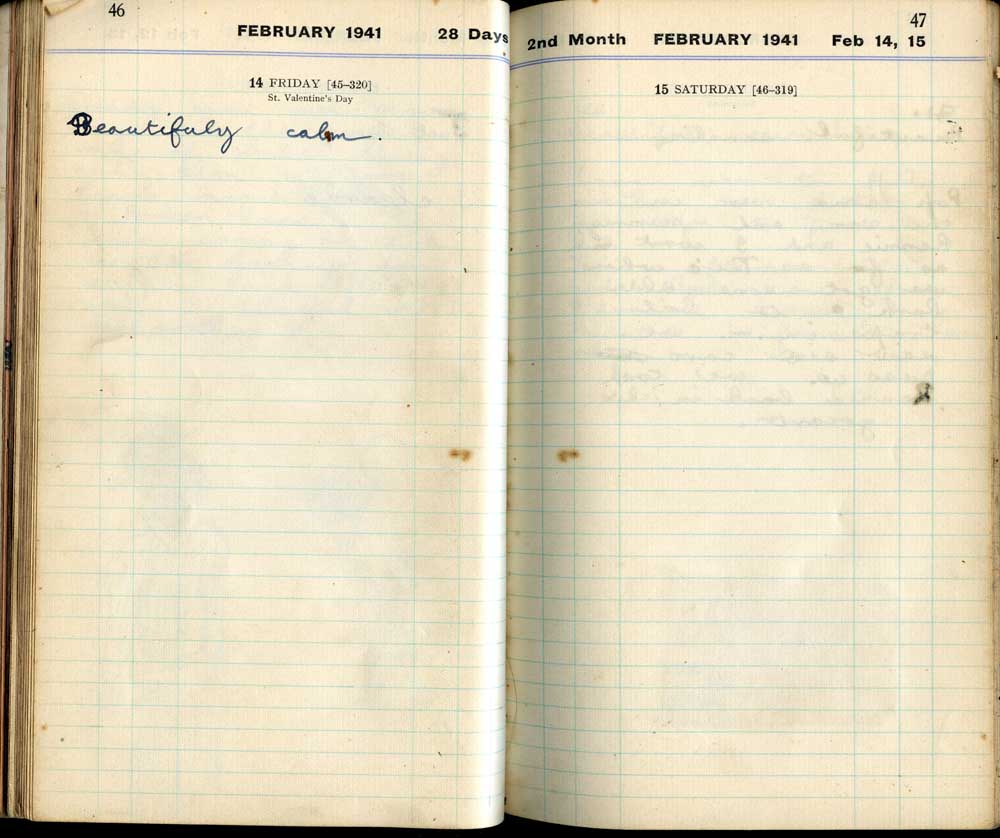 46
FEBRUARY 1941 28 Days
14 FRIDAY [45–320]
St. Valentine's Day
Beautifuly calm.
47
2nd Month FEBRUARY 1941 Feb 14, 15
15 SATURDAY [46–319]